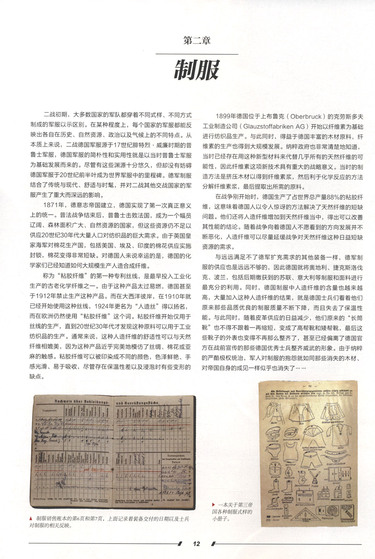 第二章
制服
二战期间，大多数国家的军队都穿着不同式样、不同方式
制成的军服以示区别。在某种程度上，每个国家的军服都能反
映出各自在历史、自然资源、政治以及气候上的不同特点。从
本质上来说，二战德国军服源于17世纪腓特烈·威廉时期的普
鲁士军服，德国军服的简约性和实用性就是以当时普鲁士军服
为基础发展而来的。尽管有这些渊源十分悠久，但却没有妨碍
德国军服于20世纪前半叶成为世界军服中的里程碑。德军制服
结合了传统与现代、舒适与时髦，并对二战其他交战国家的军
服产生了重大而深远的影响。
1871年，德意志帝国建立，德国实现了第一次真正意义
上的统一。普法战争结束后，普鲁士击败法国，成为一个幅员
辽阔、森林面积广大、自然资源的国家，但这些资源仍不足以
供应20世纪30年代大量人口对纺织品的巨大需求。由于英国皇
家海军对棉花生产国，包括美国、埃及、印度的棉花供应实施
封锁，棉花变得非常短缺，对德国人来说幸运的是，德国的化
学家们已经知道如何大规模生产人造合成纤维。
称为“粘胶纤维”的第一种专利丝线，是最早投入工业化
生产的古老化学纤维之一。由于这种产品太过易燃，德国甚至
于1912年禁止生产这种产品。而在大西洋彼岸，在1910年就
已经开始使用这种丝线，1924年更名为“人造丝”得以扬名。
而在欧洲仍然使用“粘胶纤维”这个词。粘胶纤维开始仅用于
丝线的生产，直到20世纪30年代才发现这种原料可以用于工业
纺织品的生产。通常来说，这种人造纤维的舒适性可以与天然
纤维相媲美，因为这种产品近乎完美地模仿了丝绸、棉花或亚
麻的触感。粘胶纤维可以被印染成不同的颜色，色泽鲜艳、手
感光滑、易于吸收，尽管存在保温性差以及浸泡时有些变形的
缺点。
1899年德国位于上布鲁克（Oberbruck）的克劳斯多夫
工业制造公司（Glauzstoffabriken AG）开始以纤维素为基础
进行纺织品生产。与此同时，得益于德国丰富的木材原料，纤
维素的生产也得到大规模发展。纳粹政府也非常清楚地知道，
当时已经存在用这种新型材料来代替几乎所有的天然纤维的可
能性，因此纤维素这项新技术具有重大的战略意义。当时的制
造方法是挤压木材以得到纤维素浆，然后利于化学反应的方法
分解纤维素浆，最后提取出所需的原料。
在战争刚开始时，德国生产了占世界总产量88%的粘胶纤
维，这意味着德国人以令人惊讶的方法解决了天然纤维的短缺
问题。他们还将人造纤维增加到天然纤维当中，得出可以改善
其性能的结论。随着战争向着德国人不愿看到的方向发展并不
断恶化，人造纤维可以尽量延缓战争对天然纤维这种日益短缺
资源的需求。
与远远满足不了德军扩充需求的其他装备一样，德军制服
的供应也是远远不够的。因此德国就将奥地利、捷克斯洛伐
克、波兰，包括后期缴获到的苏联、意大利等制服和面料进行
最充分的利用。同时，德国制服中人造纤维的含量也越来越
高。大量加入这种人造纤维的结果，就是德国士兵们看着他们
原来那些品质优良的制服质量不断下降，而且失去了保温性
能。与此同时，随着皮革供应的日益减少，他们原来的“长筒
靴”也不得不跟着一再缩短，变成了高帮靴和矮帮靴。最后这
些靴子的外表也变得不再那么整齐了，甚至已经偏离了德国官
方在战前宣传的那些德国优秀士兵整齐威武的形象。由于纳粹
的严酷极权统治，军人对制服的抱怨就如同那些消失的木材、
对帝国自身的成见一样似乎也消失了……
▲ 制服销售账本的第6页和第7页，上面记录着装备交付的日期以及士兵
对制服的相关反映。
▶ 一本关于第三帝
国各种制服式样的
小册子。
12